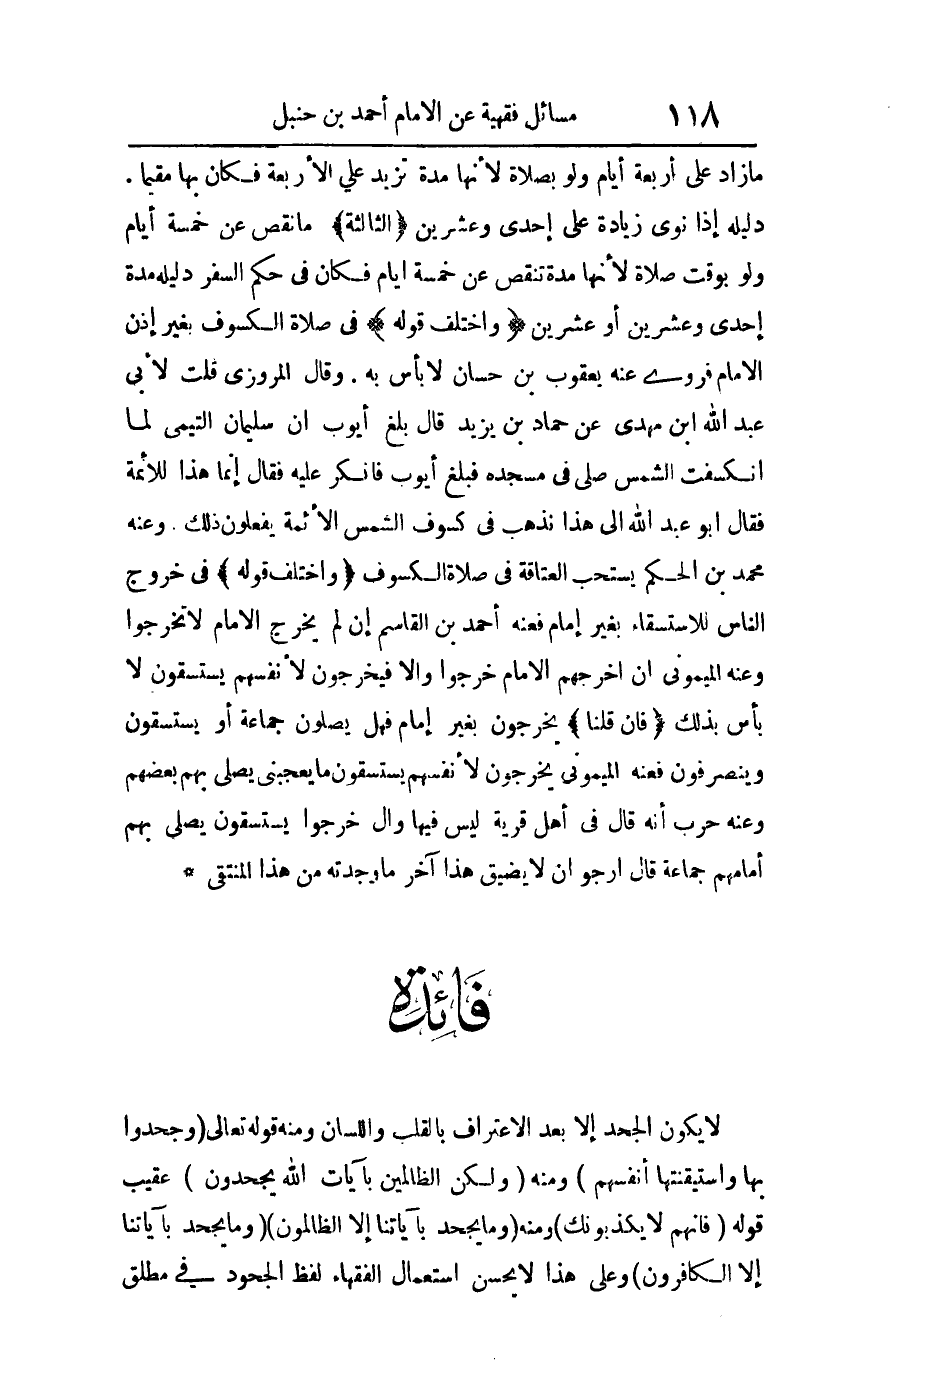 ١١٨ مسائل فقهية عن الامام أحمد بن حنبل
مازاد على أربعة أيام ولو بصلاة لأنها مدة تزيد علي الأربعة فكان بها مقيما .
دليله إذا نوى زيادة على إحدى وعشرين ﴿الثالثة﴾ مانقص عن خمسة أيام
ولو بوقت صلاة لأنها مدة تنقص عن خمسة ايام فكان فى حكم السفر دليله مدة
إحدى وعشرين أو عشرين ﴿ واختلف قوله ﴾ فى صلاة الكسوف بغير إذن
الامام فروي عنه يعقوب بن حسان لابأس به . وقال المروزى قلت لأبى
عبد الله ابن مهدى عن حماد بن يزيد قال بلغ أيوب ان سليمان التيمى لما
انكسفت الشمس صلى فى مسجده فبلغ أيوب فانكر عليه فقال إنما هذا للأئمة
فقال ابو عبد الله الى هذا نذهب فى كسوف الشمس الأئمة يفعلون ذلك . وعنه
محمد بن الحكم يستحب العتاقة فى صلاة الكسوف ﴿ واختلف قوله ﴾ فى خروج
الناس للاستسقاء بغير إمام فعنه أحمد بن القاسم إن لم يخرج الامام لاتخرجوا
وعنه الميمونى ان اخرجهم الامام خرجوا والا فيخرجون لأنفسهم يستسقون لا
بأس بذلك ﴿ فان قلنا ﴾ يخرجون بغير إمام فهل يصلون جماعة أو يستسقون
وينصرفون فعنه الميمونى يخرجون لأنفسهم يستسقون مايعجبنى يصلى بهم بعضهم
وعنه حرب أنه قال فى أهل قرية ليس فيها وال خرجوا يستسقون يصلى بهم
أمامهم جماعة قال ارجو ان لايضيق هذا آخر ماوجدته من هذا المنتقى *
فَائِدَة
لايكون الجحد إلا بعد الاعتراف بالقلب واللسان ومنه قوله تعالى (وجحدوا
بها واستيقنتها أنفسهم ) ومنه ( ولكن الظالمين بآيات الله يجحدون ) عقيب
قوله ( فانهم لايكذبونك) ومنه (ومايجحد بآياتنا إلا الظالمون)( ومايجحد بآياتنا
إلا الكافرون) وعلى هذا لايحسن استعمال الفقهاء لفظ الجحود في مطلق